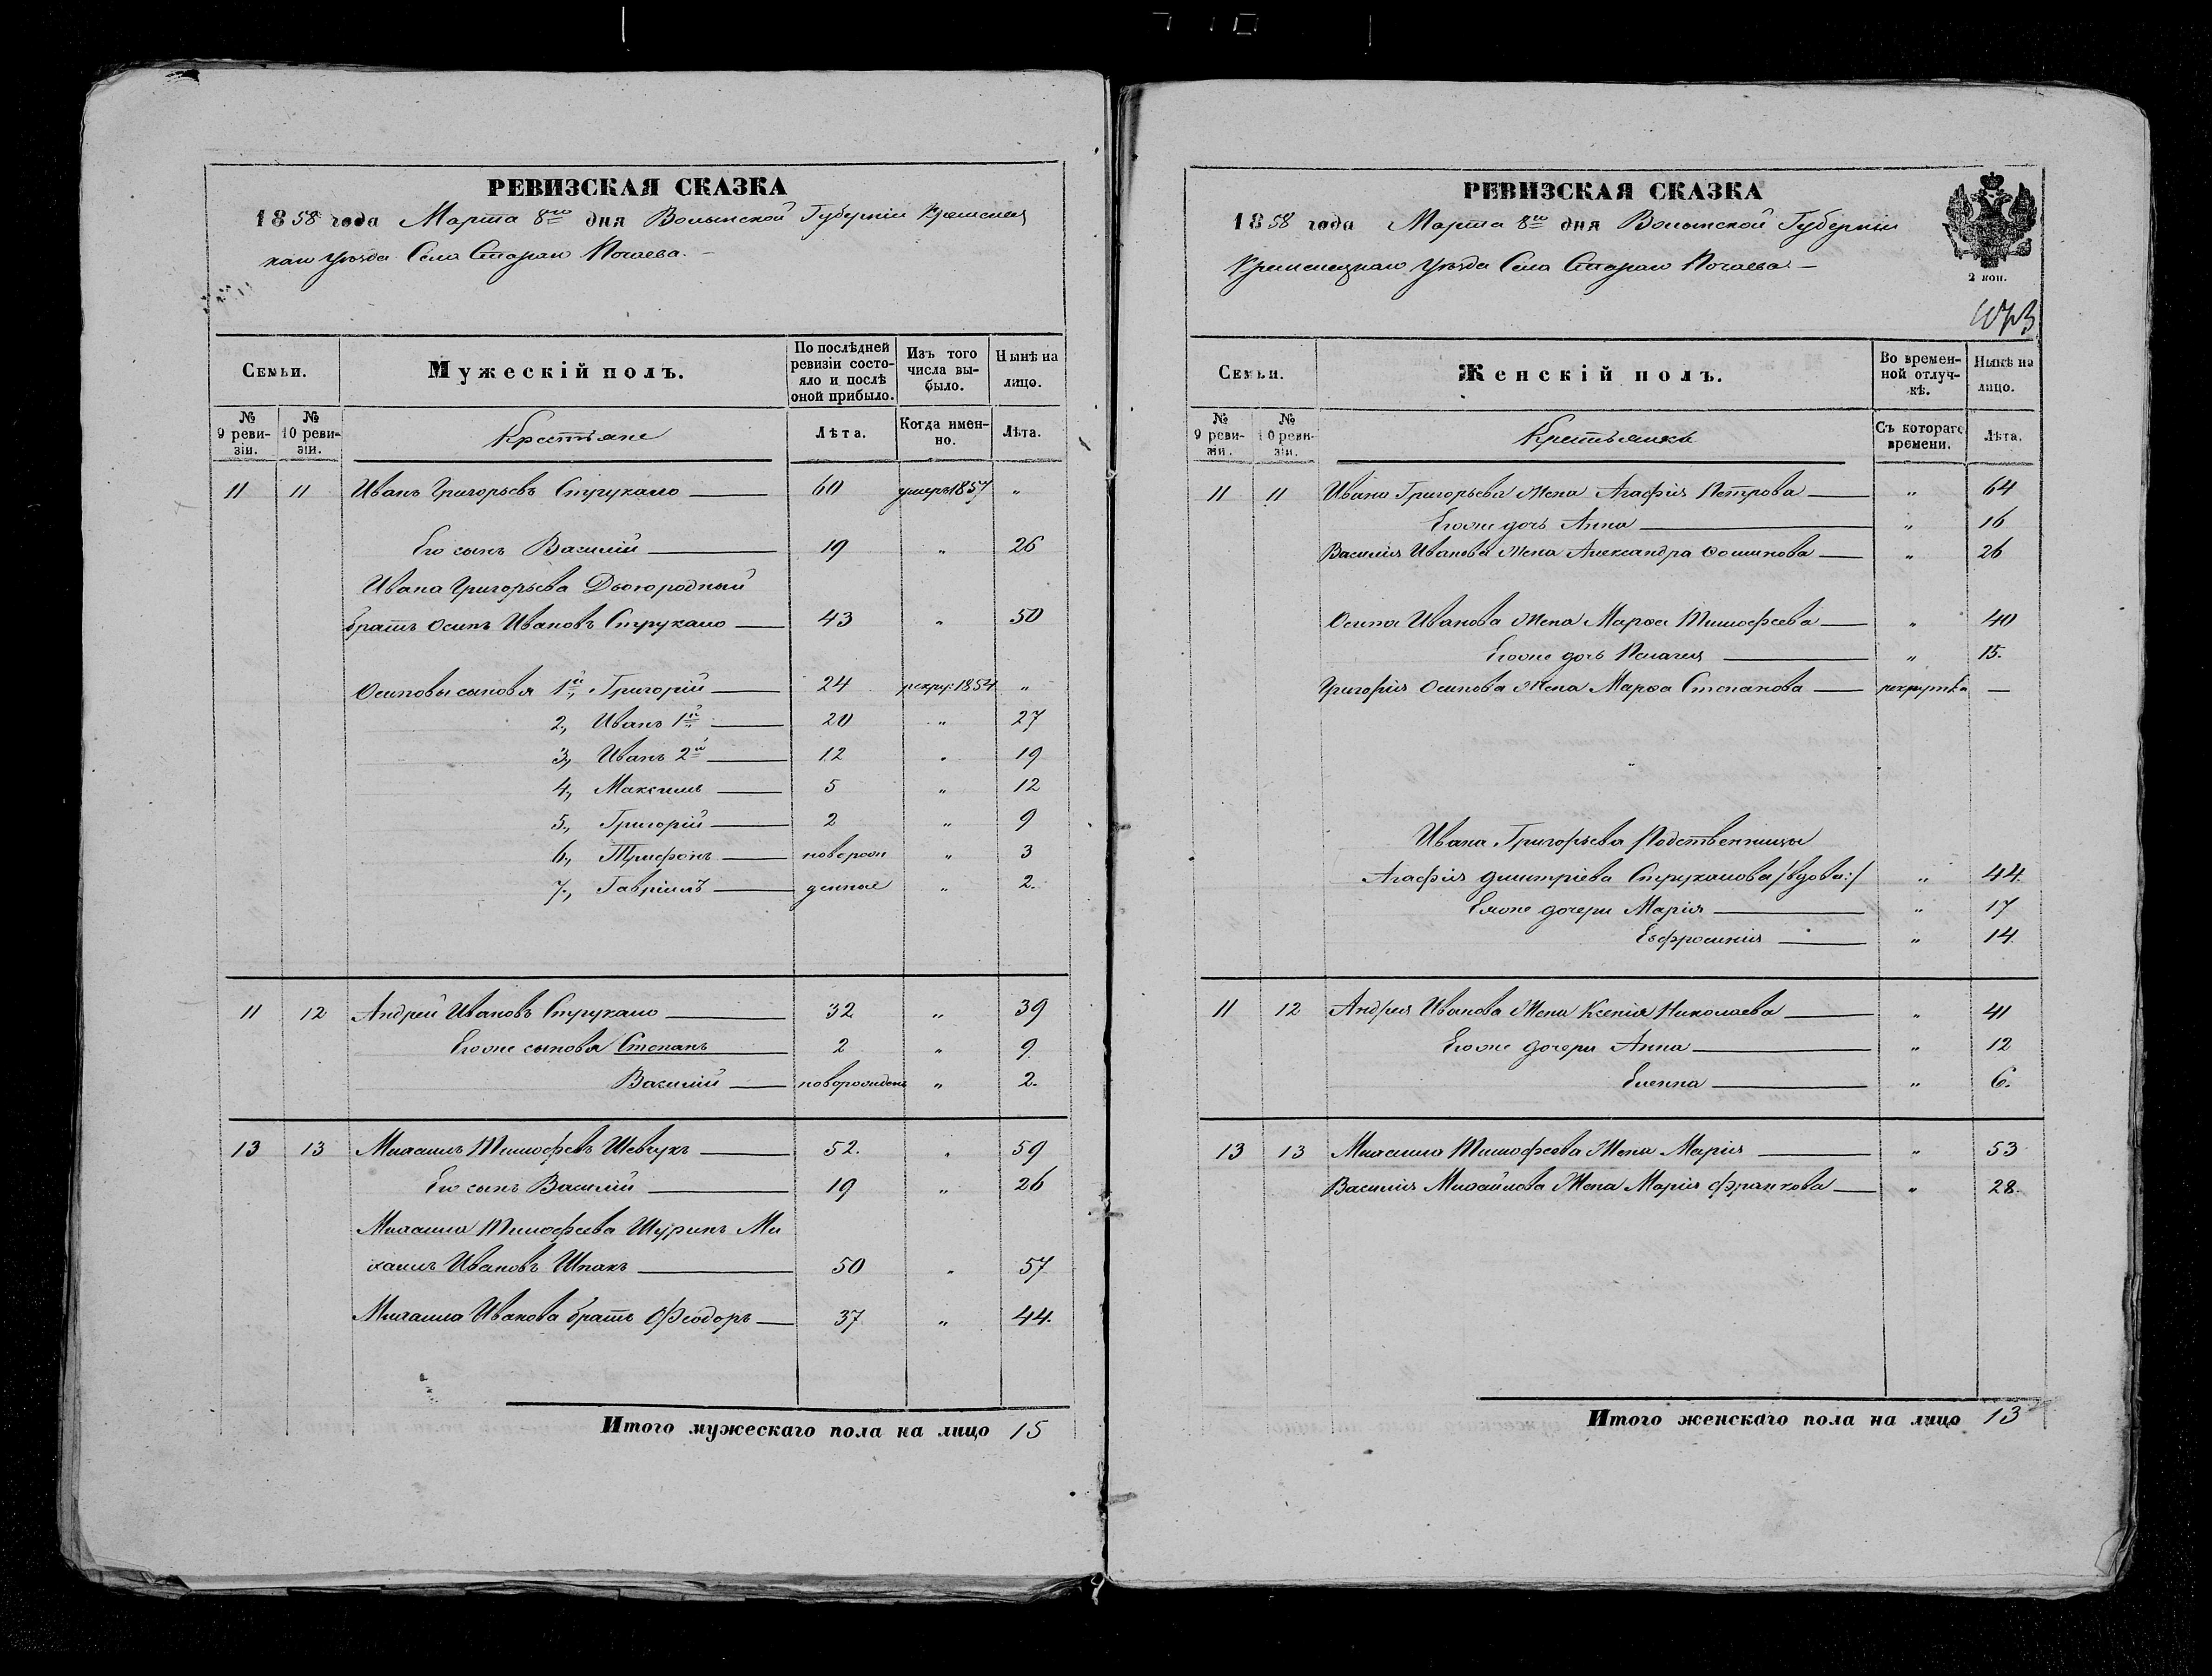 РЕВИЗСКАЯ СКАЗКА
1858 года Марта 8го дня Волынской Губерніи Кременец
каго уѣзда Села Стараго Почаева.
Семьи.
Мужескій полъ.
По послѣдней ревизіи состояло и послѣ оной прибыло.
Изъ того числа выбыло.
Нынѣ на лицо.
№ 9 ревизіи.
№ 10 ревизіи.
Крестьяне
Лѣта.
Когда именно.
Лѣта.
11 11 Иванъ Григорьевъ Струкало 60 умеръ 1857 „
Его сынъ Василій 19 „ 26
Ивана Григорьева Двоюродный
братъ Осипъ Ивановъ Струкало 43 „ 50
Осиповы сыновья 1й, Григорій 24 рекру: 1854 „
2, Иванъ 1й 20 „ 27
3, Иванъ 2й 12 „ 19
4, Максимъ 5 „ 12
5, Григорій 2 „ 9
6, Трифонъ новорож „ 3
7, Гавріилъ денные „ 2.
11 12 Андрей Ивановъ Струкало 32 „ 39
Егоже сыновья Степанъ 2 „ 9
Василій новорожденъ „ 2.
13 13 Михаилъ Тимофѣевъ Шевчукъ 52. „ 59
Его сынъ Василій 19 „ 26
Михаила Тимофѣева Шуринъ Ми
хаилъ Ивановъ Шпакъ 50 „ 57
Михаила Иванова братъ Феодоръ 37 „ 44.
Итого мужескаго пола на лицо 15
РЕВИЗСКАЯ СКАЗКА
1858 года Марта 8го дня Волынской Губерніи
Кременецкаго уѣзда Села Стараго Почаева
2 коп.
Семьи.
Женскій полъ.
Во временной отлучкѣ.
Нынѣ на лицо.
№ 9 ревизіи.
№ 10 ревизіи.
Крестьянки
Съ котораго времени.
Лѣта.
11 11 Ивана Григорьева Жена Агафія Петрова „ 64
Егоже дочь Анна „ 16
Василія Иванова Жена Александра „ 26
Осипа Иванова Жена Марѳа Тимофѣева „ 40
Егоже дочь Пелагея „ 15.
Григорія Осипова Жена Марѳа Степанова рекрутка —
Ивана Григорьева Родственницы
Агафія Дмитріева Струкалова /вдова:/ „ 44.
Еяже дочери Марія „ 17
Евфросинія „ 14.
11 12 Андрея Иванова Жена Ксенія Николаева „ 41
Егоже дочери Анна „ 12
Еленна „ 6.
13 13 Михаила Тимофѣева Жена Марія „ 53
Василія Михайлова Жена Марія Франкова „ 28.
Итого женскаго пола на лицо 13